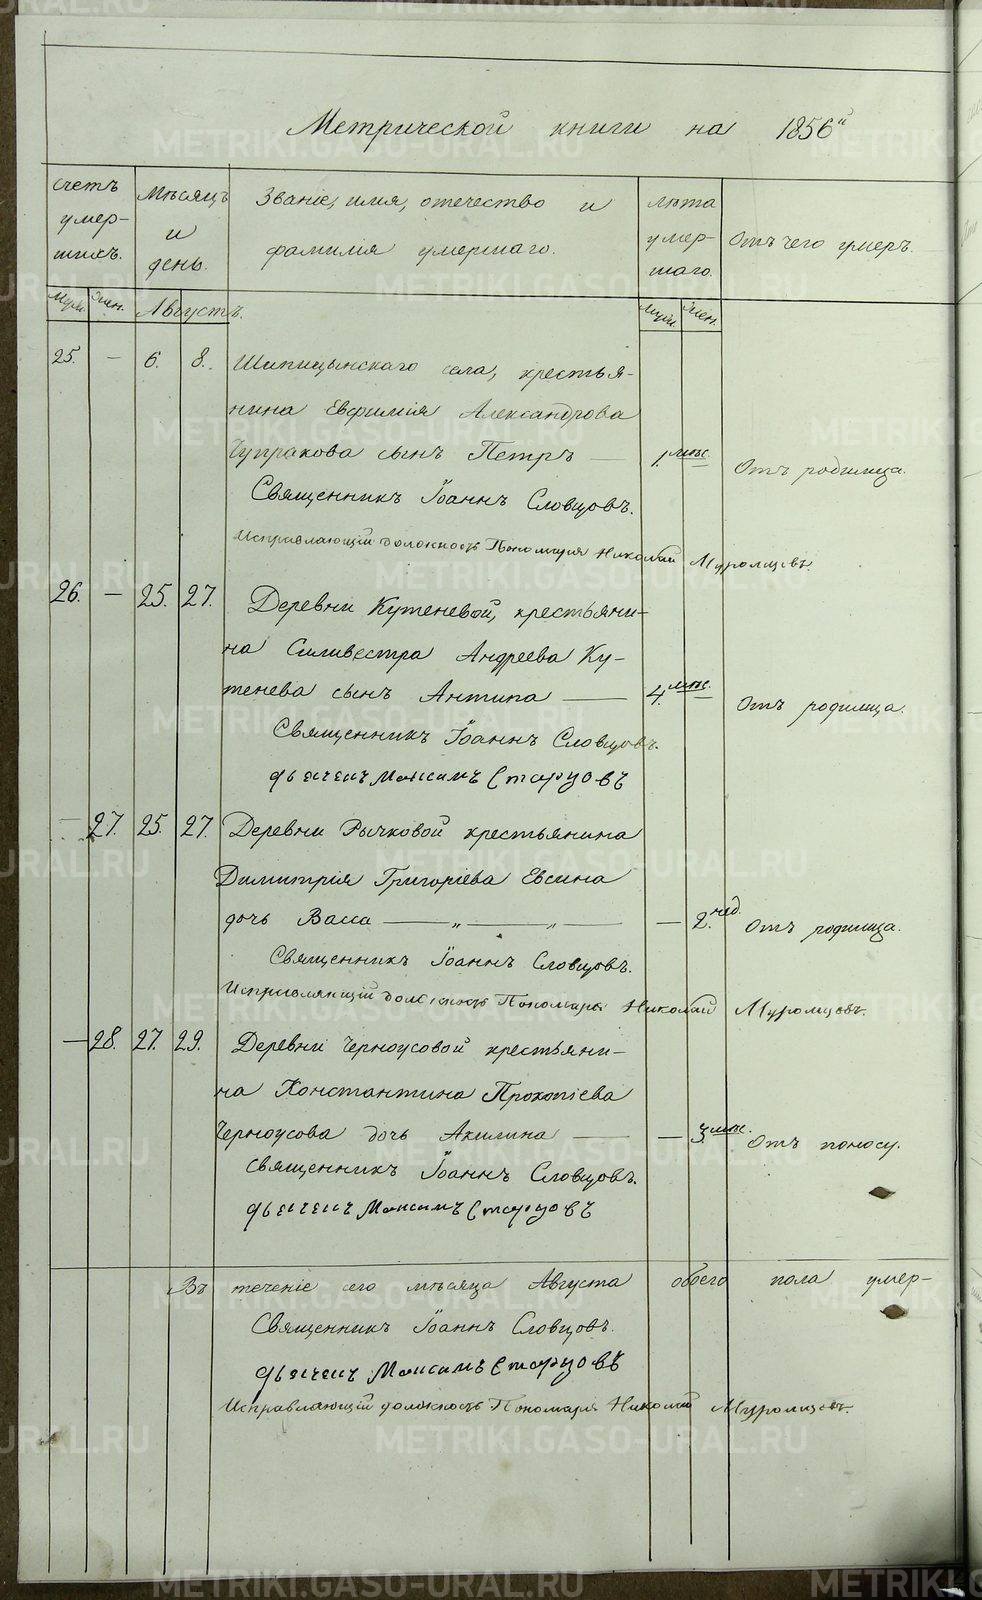 Метрической книги на 1856й
Счетъ умер-шихъ.
Мѣсяцъ и день.
Званіе, имя, отечество и фамилія умершаго.
Лѣта умер-шаго.
Отъ чего умеръ.
Муж. Жен. Августъ. Муж. Жен.
25. — 6. 8. Шипицынскаго села, крестья-
нина Евфимія Александрова
Чупракова сынъ Петръ — 1. мѣс. Отъ родимца.
Священникъ Іоаннъ Словцовъ.
Исправляющій должность Пономаря Николай Муромцовъ.
26. — 25. 27. Деревни Кутеневой, крестьяни-
на Силивестра Андреева Ку-
тенева сынъ Антипа — 4. мѣс. Отъ родимца.
Священникъ Іоаннъ Словцовъ.
дьячекъ Максимъ Старцовъ
— 27. 25. 27. Деревни Рычковой крестьянина
Димитрія Григоріева Евсина
дочь Васса — „ — „ — — 2. нед. Отъ родимца.
Священникъ Іоаннъ Словцовъ.
Исправляющій должность Пономаря Николай Муромцовъ.
— 28. 27. 29. Деревни Черноусовой крестьяни-
на Константина Прокопіева
Черноусова дочь Акилина — — 3 мѣс. Отъ поносу.
Священникъ Іоаннъ Словцовъ.
дьячекъ Максимъ Старцовъ
Въ теченіе сего мѣсяца Августа обоего пола умер-
Священникъ Іоаннъ Словцовъ.
дьячекъ Максимъ Старцовъ
Исправляющій должность Пономаря Николай Муромцовъ.
METRIKI.GASO-URAL.RU